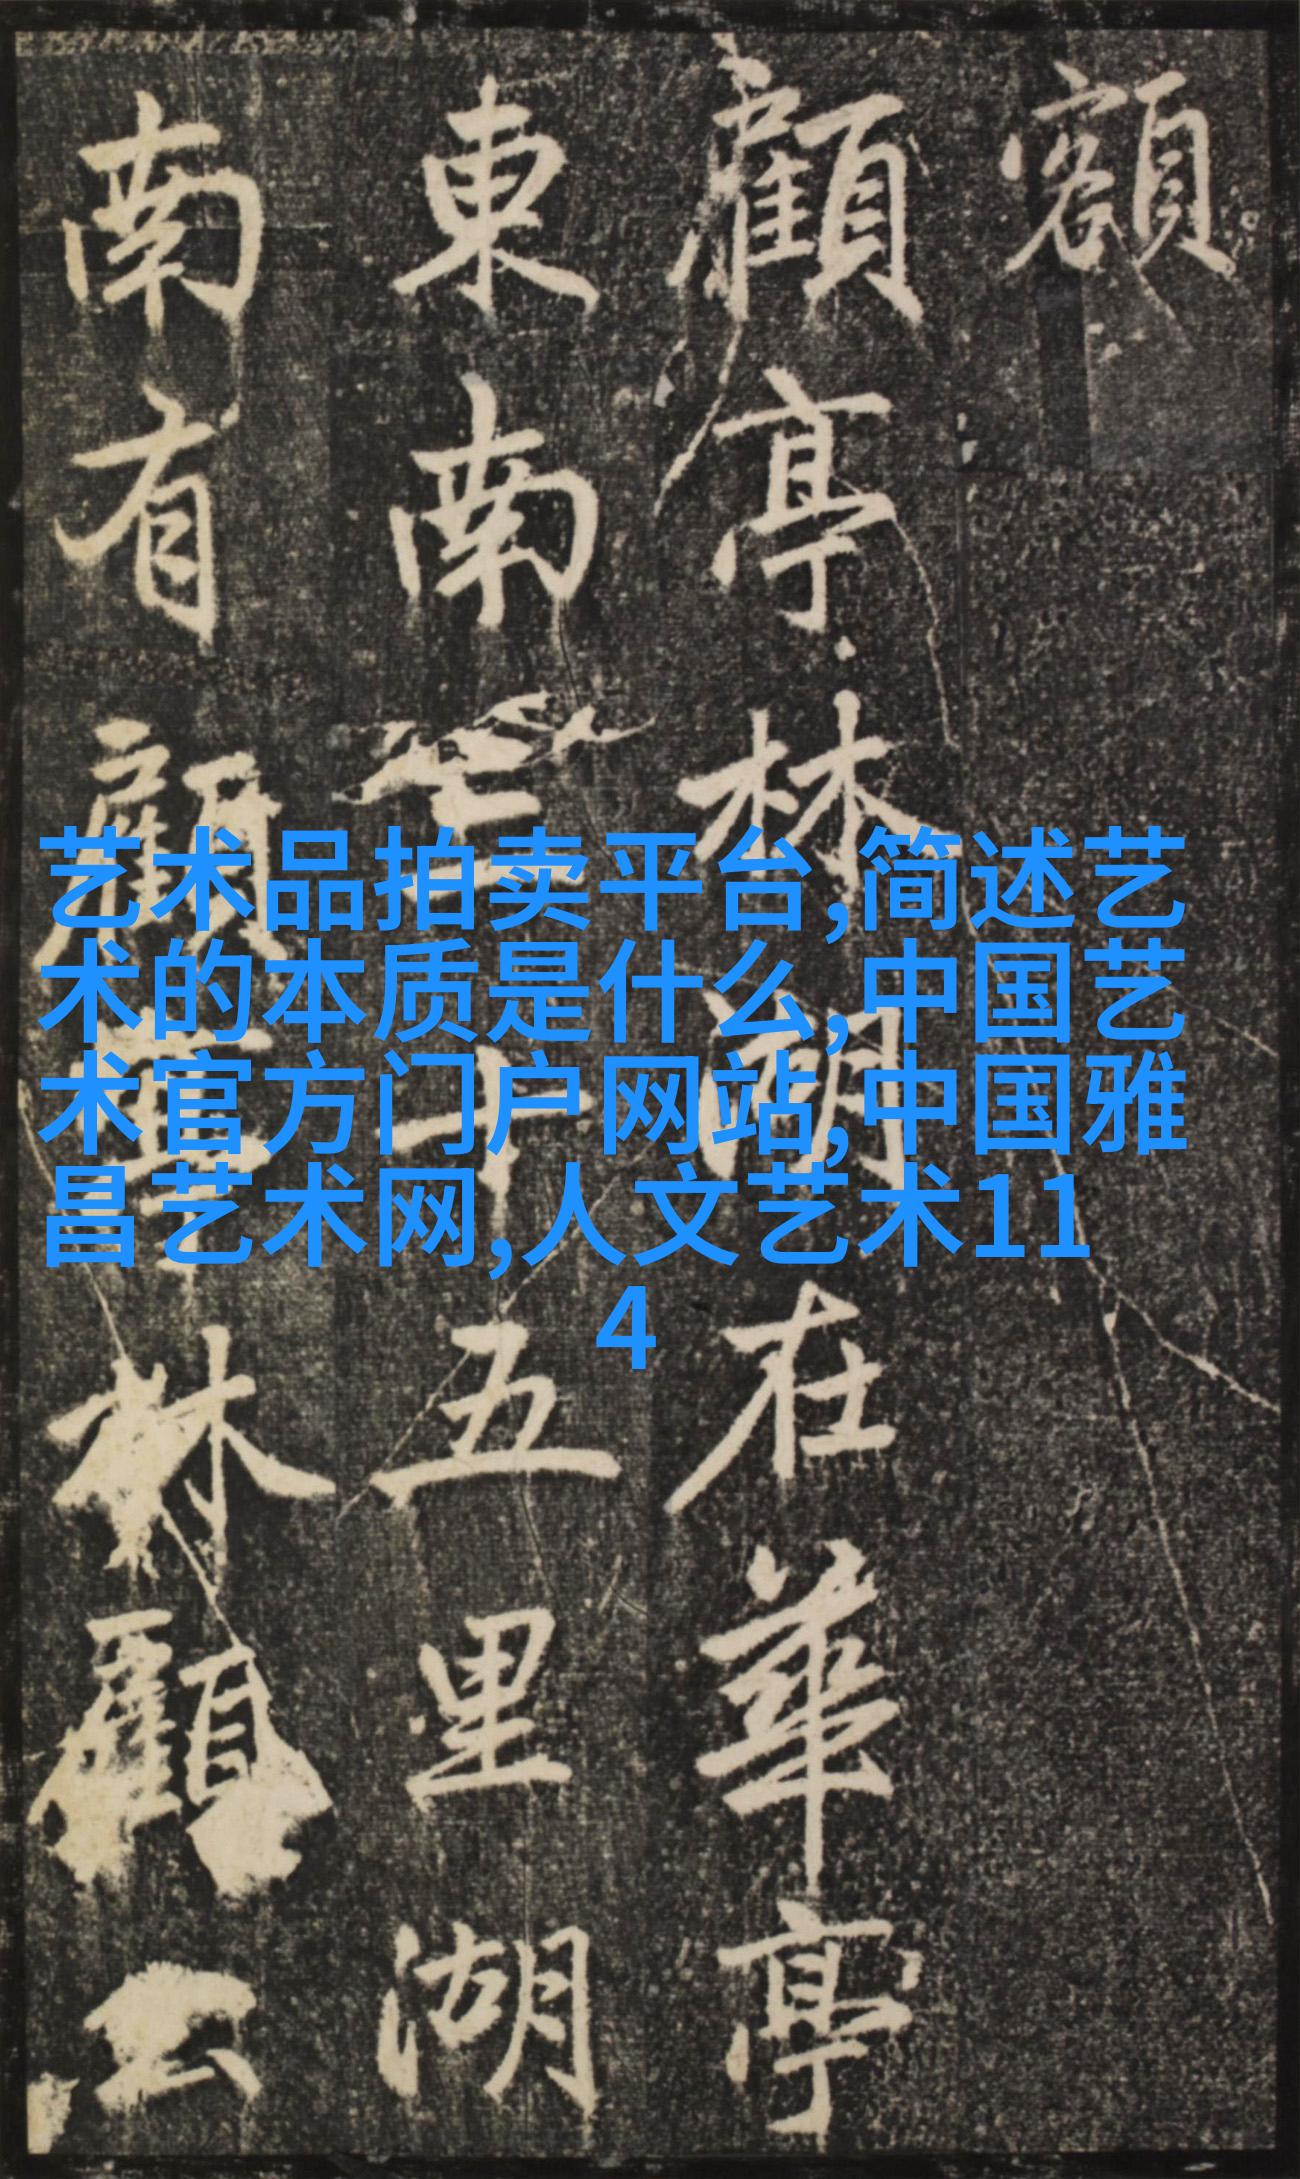 額
顧亭林湖在華亭
東南三十五里湖
南有顧林顧公
艺术品拍卖平台,简述艺
术的本质是什么,中国艺
术官方门户网站,中国雅
昌艺术网,人文艺术11
4